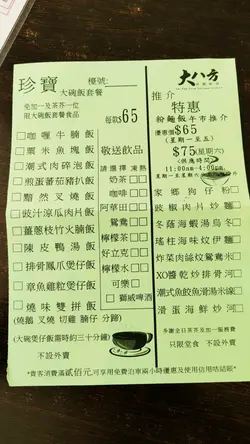 珍寶
檯號:
大碗飯套餐
免加一及茶芥一位
限大碗飯套餐食品
每款$65
咖喱牛腩飯
粟米魚塊飯
潮式肉碎泡飯
煎蛋蕃茄豬扒飯
黯然叉燒飯
豉汁涼瓜肉片飯
薑蔥枝竹火腩飯
陳皮鴨湯飯
排骨鳳爪煲仔飯
章魚雞粒煲仔飯
燒味雙拼飯
(燒鵝 叉燒 切雞 腩仔 分歸)
(大碗煲仔飯需時約三十分鐘)
不設外賣
敬送飲品
請選擇 凍 熱
奶茶
咖啡
阿華田
鴛鴦
檸檬茶
好立克
檸檬水
可樂
獅威啤酒
大八方
推介
特惠
粉麵飯午市推介
優惠價$65
(星期一至五)
$75(星期六)
(供應時間)
11:00am-4:00pm
家鄉狗仔粉
豉椒肉片炒麵
冬蔭海蝦湯烏冬
瑤柱海味炆伊麵
炸菜肉絲炆鴛鴦米
XO醬乾炒排骨河
潮式魚餃魚滑湯米線
滑蛋海鮮炒河
多謝全日茶芥及加一服務費
只限堂食 不設外賣
*貴客消費滿貳佰元,可享用免費泊車兩小時優惠及使用信用咭結賬*